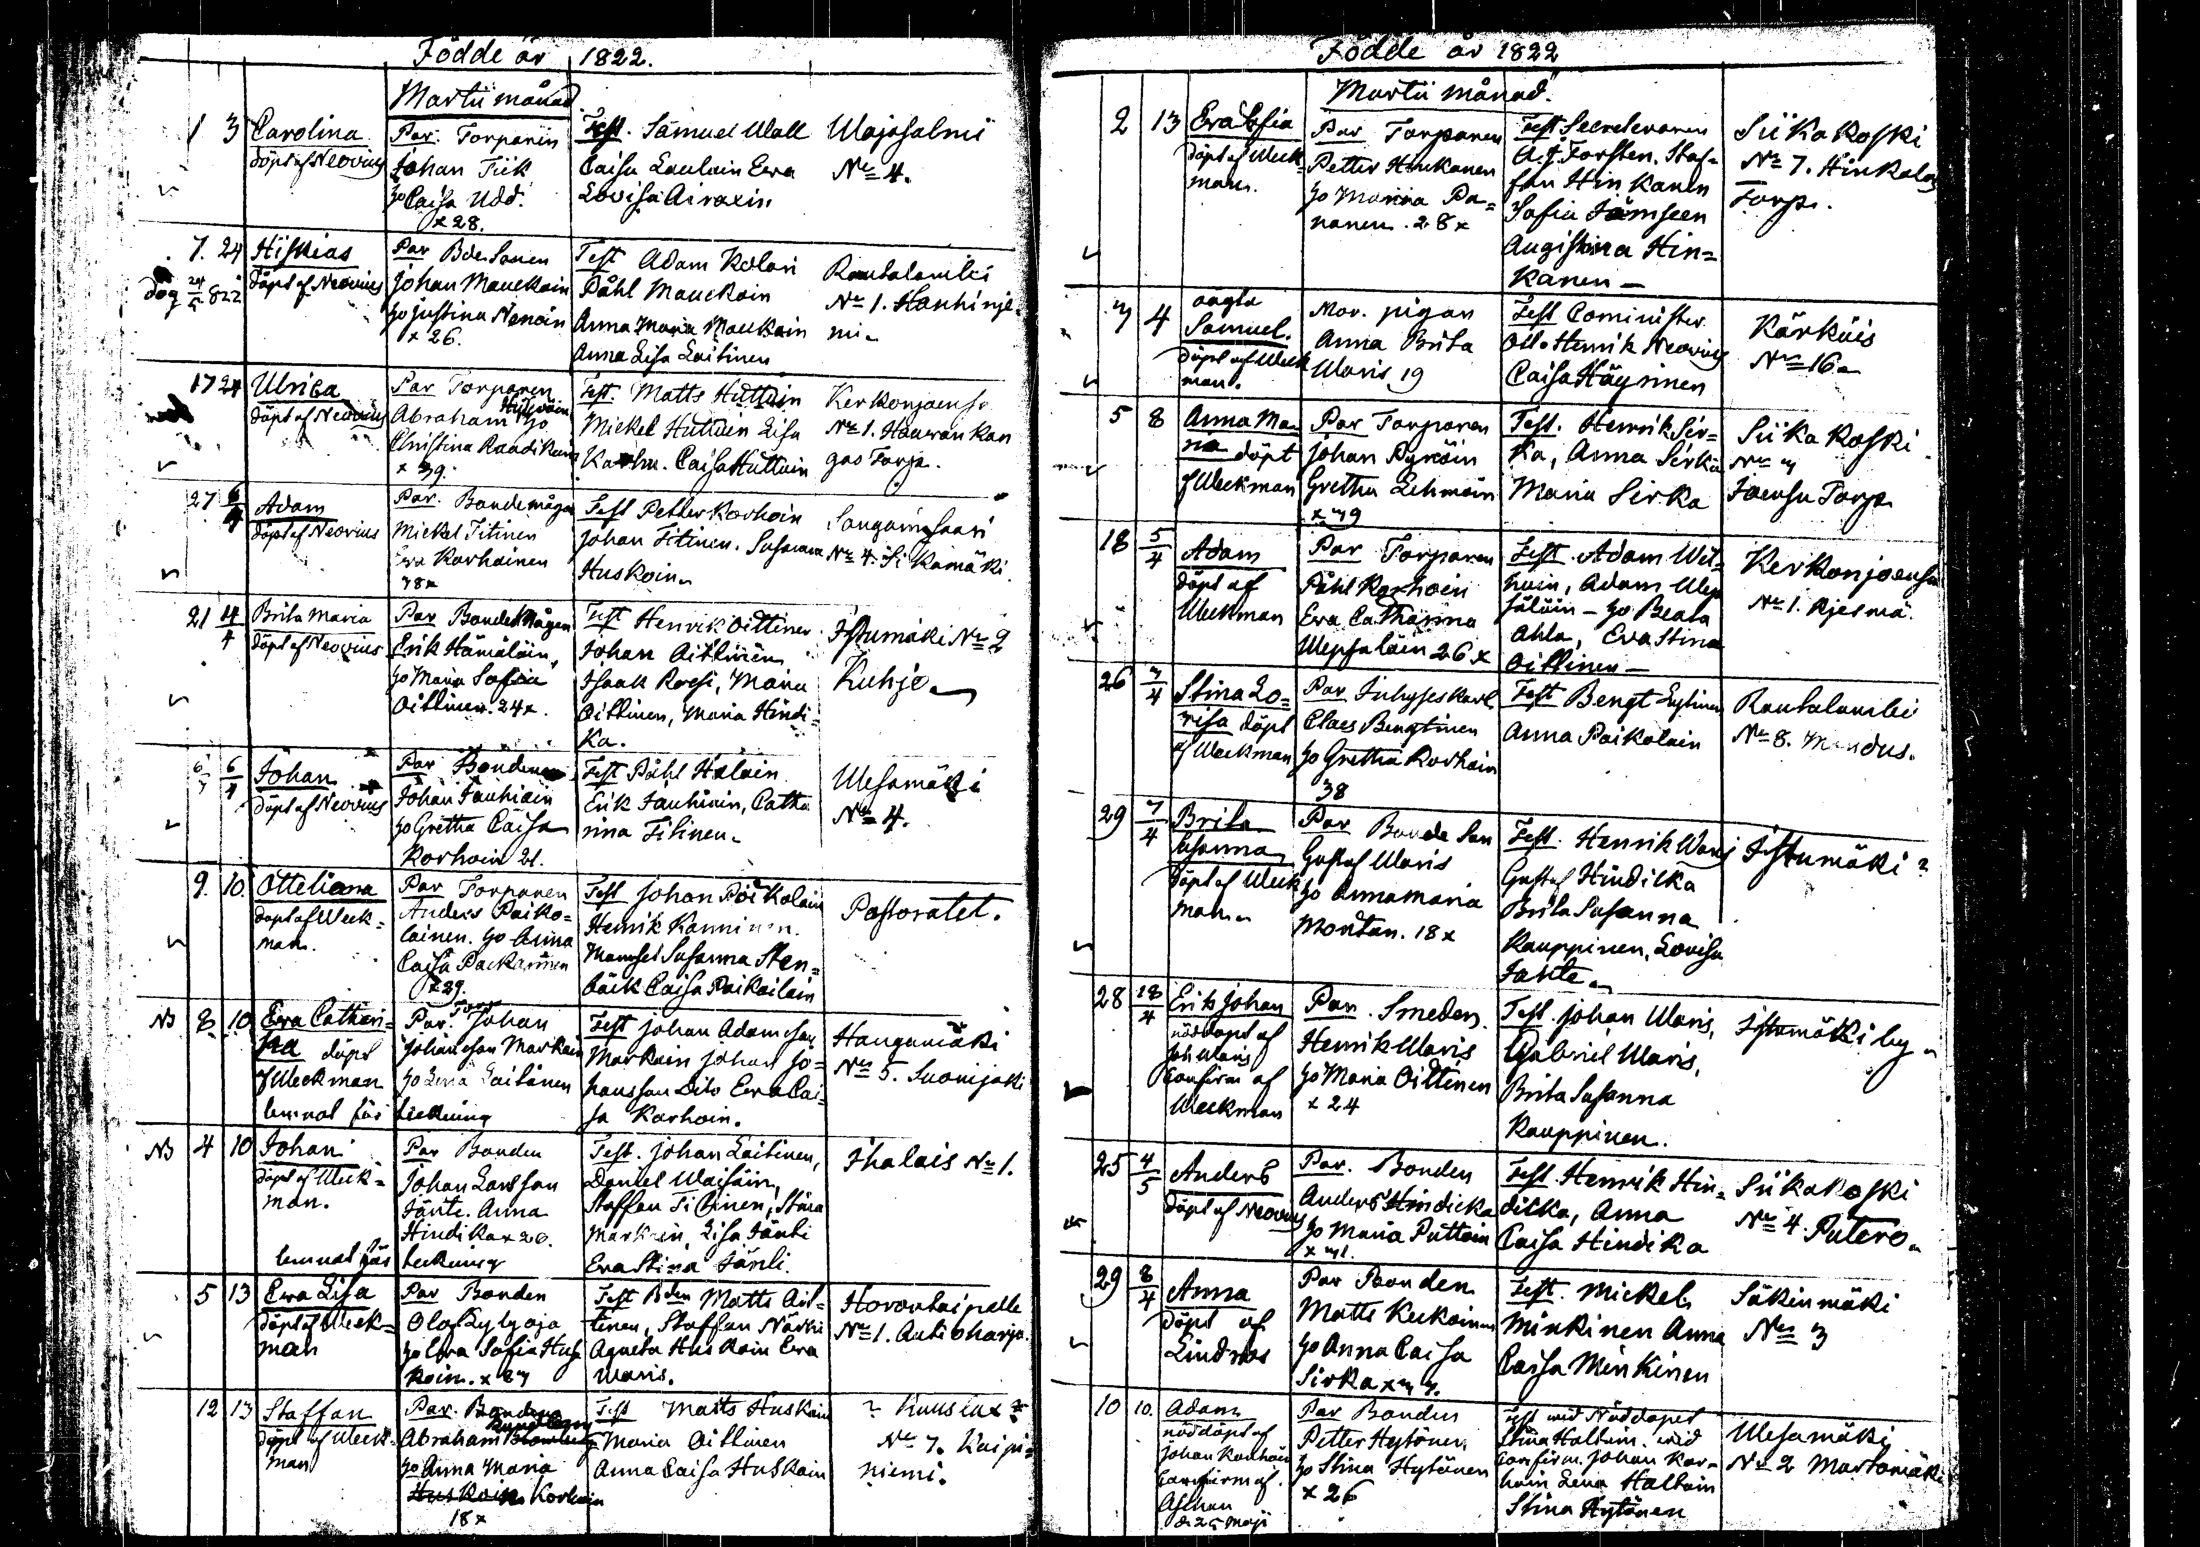 Födde år 1822.
Martii månad.
1 3 Carolina
döpt af Neovius
Par: Torparin
Johan Tiik
ho Caisa Udd.
x 28.
Test. Samuel Wall
Caisa Laulain Ewa
Lovisa Airaxin
Wajosalmi
No 4.
7. 24 Hiskias
döpt af Neovius
Par Bde Sonen
Johan Mauckoin
ho Justina Nenoin
x 26.
Test Adam Kolari
Påhl Mauckoin
Anna Maria Maukoin
Anna Lisa Laitinen
Rautalambi
No 1. Hanhinje
mi
17 24 Ulrica
döpt af Neovius
Par Torparen
Abraham ho
Christina Raudikain
x 39.
Test. Matts Huttuin
Mickel Huttuin Lisa
Caisa Huttuin
Kerkonjoensu
No 1. Hauvankan
gas Torp.
27 6/4 Adam
döpt af Neovius
Par. Bondemågen
Mickel Titinen
Ewa Korhoinen
38x
Test Petter Korhoin
Johan Titinen. Susanna
Huskoin
No 4. Sikamäki
21 4/4 Brita Maria
döpt af Neovius
Par Bondemågen
Erik Hämäläin,
ho Maria Sofia
Oittinen. 24x.
Test Henrik Oittinen
Johan Oittinen
Isaak Rossi, Maria
Oittinen, Maria Hindi=
ka.
Istumäki No 2
Kuhje
6/4 Johan
döpt af Neovius
Par Bonden
Johan Jauhiain
ho Gretha Caisa
Korhoin 21.
Test Påhl Haloin
Erik Jauhiain, Catha
rina Titinen
Wesamäki
No 4.
9. 10. Otteliana
döpt af Week=
man.
Par Torparen
Anders Paiko=
lainen. ho Anna
Caisa Packarinen
x 29.
Test Johan Poikolain
Henrik Kanninen.
Mamsel Susanna Sten=
bäck Caisa Poikolain
Pastoratet.
NB 8 10 Ewa Cathari=
na döpt
af Weekman
lemnat för teckning
Par. Torp Johan
Johansson Markain
ho Lena Laitinen
Test Johan Adamsson
Markain Johan Jo=
hansson Dito Ewa Cai=
sa Korhoin.
Hangamäki
No 5. Suonijoki
NB 4 10 Johan
döpt af Week=
man.
lemnat för teckning
Par Bonden
Johan Larsson
Jänti. Anna
Hindika x 20.
Test. Johan Laitinen,
Daniel Waisäin,
Staffan Titinen, Stina
Markain, Lisa Jänti
Ewa Stina Jänti.
Ihalais No 1.
5 13 Ewa Lisa
döpt af Week=
man
Par Bonden
Ola Kylyoja
ho Ewa Sofia Hus
koin. x 27
Test Bden Matts Oit=
tinen, Staffan Närhi
Agneta Huskoin Ewa
Waris.
No 1. Autioharju.
12 13 Staffan
döpt af Week=
man
Par. Bonden
Abraham
ho Anna Maria
Korhoin
18x
Test Matts Huskoin
Maria Oittinen
Anna Caisa Huskoin
No 7. Kaipi=
niemi.
Födde år 1822
Martii månad.
2 13 Eva Sofia
döpt af Week=
man.
Par Torparen
Petter Hinkanen
ho Maria Pa=
nanen. 28x
Test Secreteraren
A. J. Forstén. Staf=
fan Hinkanen
Sofia Jämseen
Augistina Hin=
kanen
Siikakoski
No 7. Hinkalas
Torp.
3 4 oägta
Samuel.
döpt af Week
man.
Mor. pigan
Anna Brita
Waris 19
Test Cominister
Otto Henrik Neovius
Caisa Häyrinen
Kärkäis
No 16
5 8 Anna Ma
ria döpt
af Weekman
Par Torparen
Johan Pynöin
Gretha Lehmoin
x 39
Test. Henrik Sir=
ka, Anna Sirka
Maria Sirka
Siikakoski
No 3
Joensu Torp.
18 5/4 Adam
döpt af
Weekman
Par Torparen
Påhl Korhoin
Ewa Catharina
Wepsäläin 26x
Test. Adam Wil=
huin, Adam Wep
säläin – ho Beata
Ahla, Eva Stina
Oittinen
Kerkonjoensu
26 7/4 Stina Lo=
visa döpt
af Weekman
Par Inhysses karl
Claes Bengtinen
ho Gretha Korhoin
38
Test Bengt Lytinen
Anna Poikolain
Rautalambi
No 8. Mandus.
29 7/4 Brita
Susanna
döpt af Week
man.
Par Bonde Son
Gustaf Waris
ho Anna Maria
Montan. 18x
Test. Henrik Waris
Gustaf Hindika
Brita Susanna
Kauppinen, Lovisa
Istumäki 2
28 18/4 Erik Johan
nöddöpt af
Joh Waris
Confirm af
Weekman
Par. Smeden
Henrik Waris
ho Maria Oittinen
x 24
Test. Johan Waris,
Gabriel Waris,
Brita Susanna
Kauppinen.
Istumäki by
25 4/5 Anders
döpt af Neovius
Par. Bonden
Anders Hindicka
ho Maria Puttoin
x 31.
Test. Henrik Hin=
dikka, Anna
Caisa Hindika
Siikakoski
No 4. Putero
29 8/4 Anna
döpt af
Lindroos
Par Bonden
Matts Keckoinen
ho Anna Caisa
Sirka x 33.
Test. Mickel
Minkinen Anna
Caisa Minkinen
Säkinmäki
No 3
10 10. Adam
nöddöpt af
Johan Korhoin
Confirm af
d. 25 Maji
Par Bonden
Petter Hytönen
ho Stina Hytönen
x 26
Test wid Nöddopet
Stina Haltuin. wid
Confirm. Johan Kor=
hoin Lena Haltuin
Stina Hytönen
Wesamäki
No 2 Martomäki